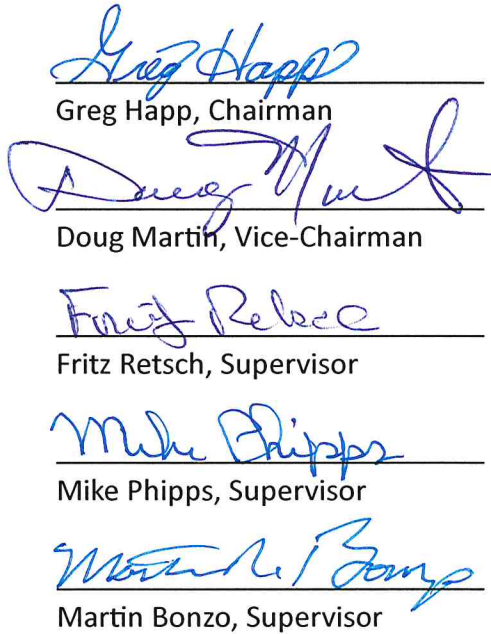 Greg Happ
Greg Happ, Chairman
Doug Martin
Doug Martin, Vice-Chairman
Fritz Retsch
Fritz Retsch, Supervisor
Mike Phipps
Mike Phipps, Supervisor
Martin Bonzo
Martin Bonzo, Supervisor